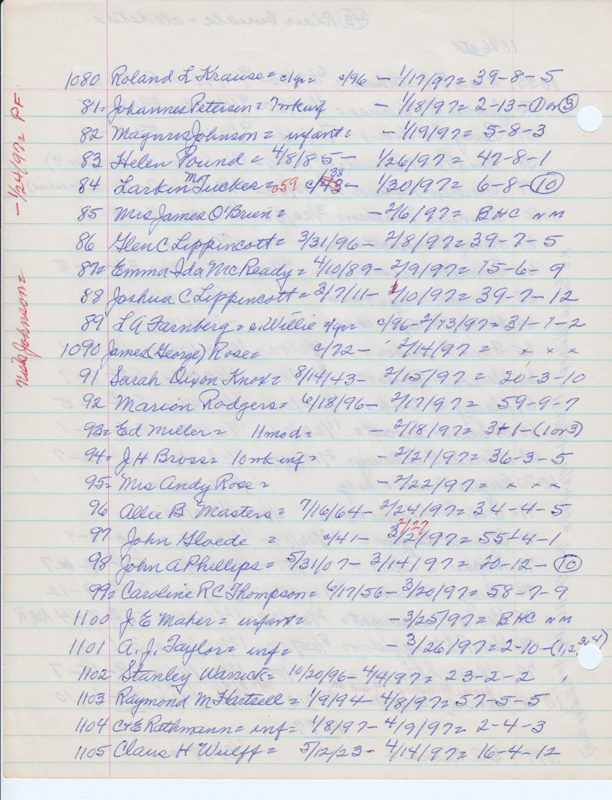 1080 Roland L Krause = c/yr = c/96 - 1/17/97 = 39-8-5
81 = Johannes Petersen = 7mk inf - 1/18/97 = 2-13-1 or 3
82 Magnus Johnson = infant = - 1/19/97 = 5-8-3
83 Helen Pound = 4/8/85 - 1/26/97 = 47-8-1
84 Larkin Mor Tucker = 059 c/43 38 - 1/30/97 = 6-8-10
85 Mrs James O'Brien = - 2/6/97 = BHC nm
86 Glen C Lippincott = 3/31/96 - 2/8/97 = 39-7-5
87 = Emma Ida McReady = 4/10/89 - 2/9/97 = 15-6-9
88 Joshua C Lippincott = 3/7/11 - 1/10/97 = 39-7-12
89 L A Farnberg = a. Willie 2/yr = c/96 - 2/13/97 = 31-1-2
1090 James (George) Rose = c/72 - 2/14/97 = x x x
91 Sarah Dixon Knox = 8/14/43 - 2/15/97 = 20-3-10
92 Marion Rodgers = 6/18/96 - 2/17/97 = 59-9-7
93 = Ed Miller = 11mod = - 2/18/97 = 3+1-(1 or 3)
94 = J H Bross = 10 mk inf = - 2/21/97 = 36-3-5
95 = Mrs Andy Rose = - 2/22/97 = x x x
96 Allie B Masters = 7/16/64 - 2/24/97 = 34-4-5
2/27
97 John Gloede = c/41 - 3/2/97 = 55+4-1
98 John A Phillips = 5/31/07 - 3/14/97 = 20-12-10
99 = Caroline R C Thompson = 6/17/56 - 3/20/97 = 58-7-9
1100 J. E Maher = infant = - 3/25/97 = BHC nm
1101 A. J. Taylor = inf = - 3/26/97 = 2-10-(1,2,3,4)
1102 Stanley Warrick = 10/20/96 - 4/4/97 = 23-2-2
1103 Raymond M Hartsell = 1/9/94 - 4/8/97 = 57-5-5
1104 C+E Rathmann = inf = 1/8/97 - 4/9/97 = 2-4-3
1105 Claus H Wulff = 5/12/23 - 4/14/97 = 16-4-12
Johnson = - 1/24/97 = PF.